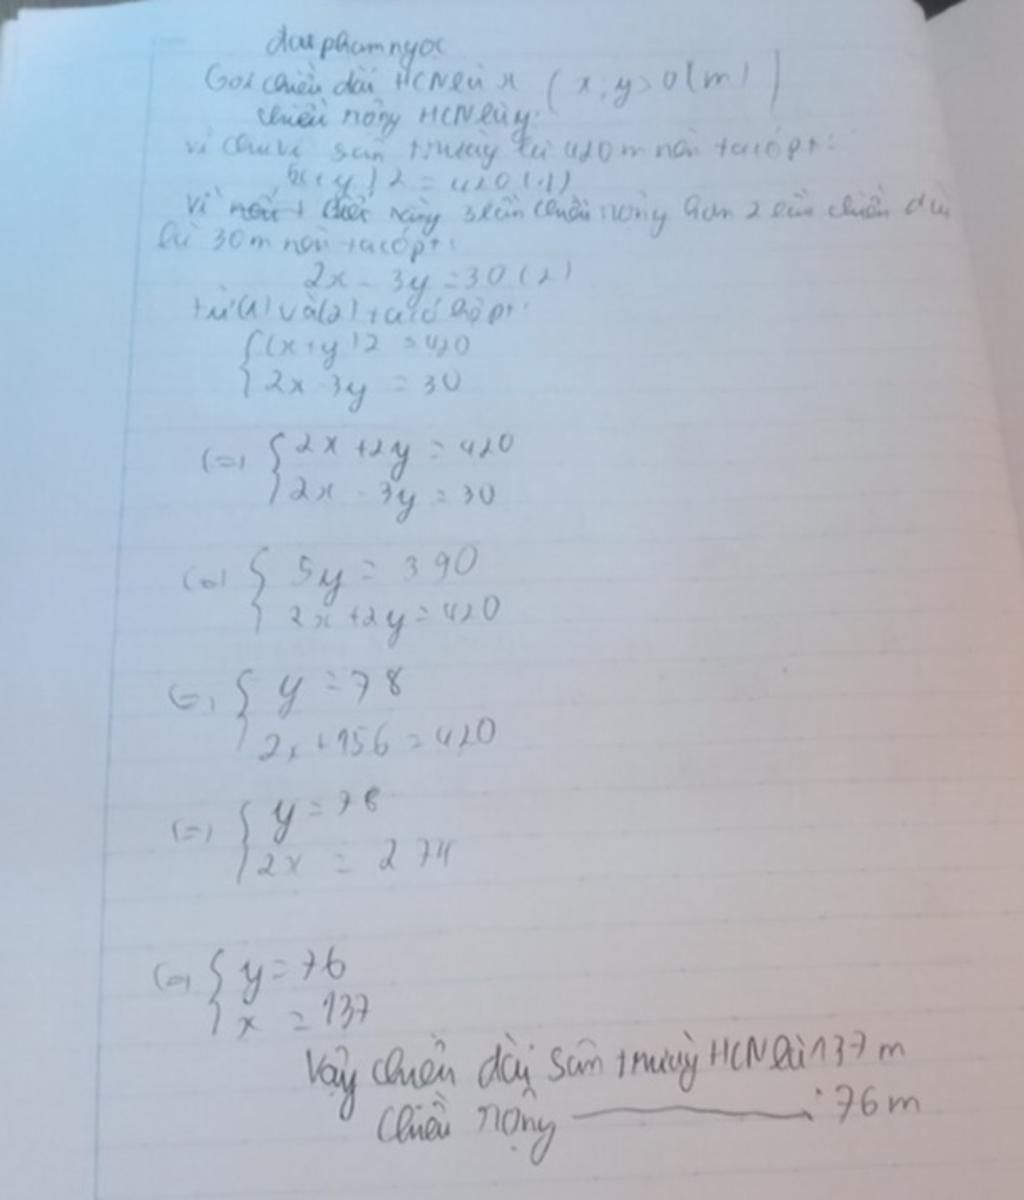 datphamngọc
Gọi chiều dài HCN là x (x; y > 0 (m))
chiều rộng HCN là y
vì chu vi sân trường là 420 m nên ta có pt:
(x + y) 2 = 420 (1)
Vì 3 lần chiều rộng hơn 2 lần chiều dài
là 30 m nên ta có pt:
2x - 3y = 30 (2)
từ (1) và (2) ta có hệ pt:
{ (x + y) 2 = 420
{ 2x - 3y = 30
(=) { 2x + 2y = 420
{ 2x - 3y = 30
(=) { 5y = 390
{ 2x + 2y = 420
(=) { y = 78
{ 2x + 156 = 420
(=) { y = 78
{ 2x = 274
(=) { y = 76
{ x = 137
Vậy chiều dài sân trường HCN là 137 m
Chiều rộng ———— : 76 m